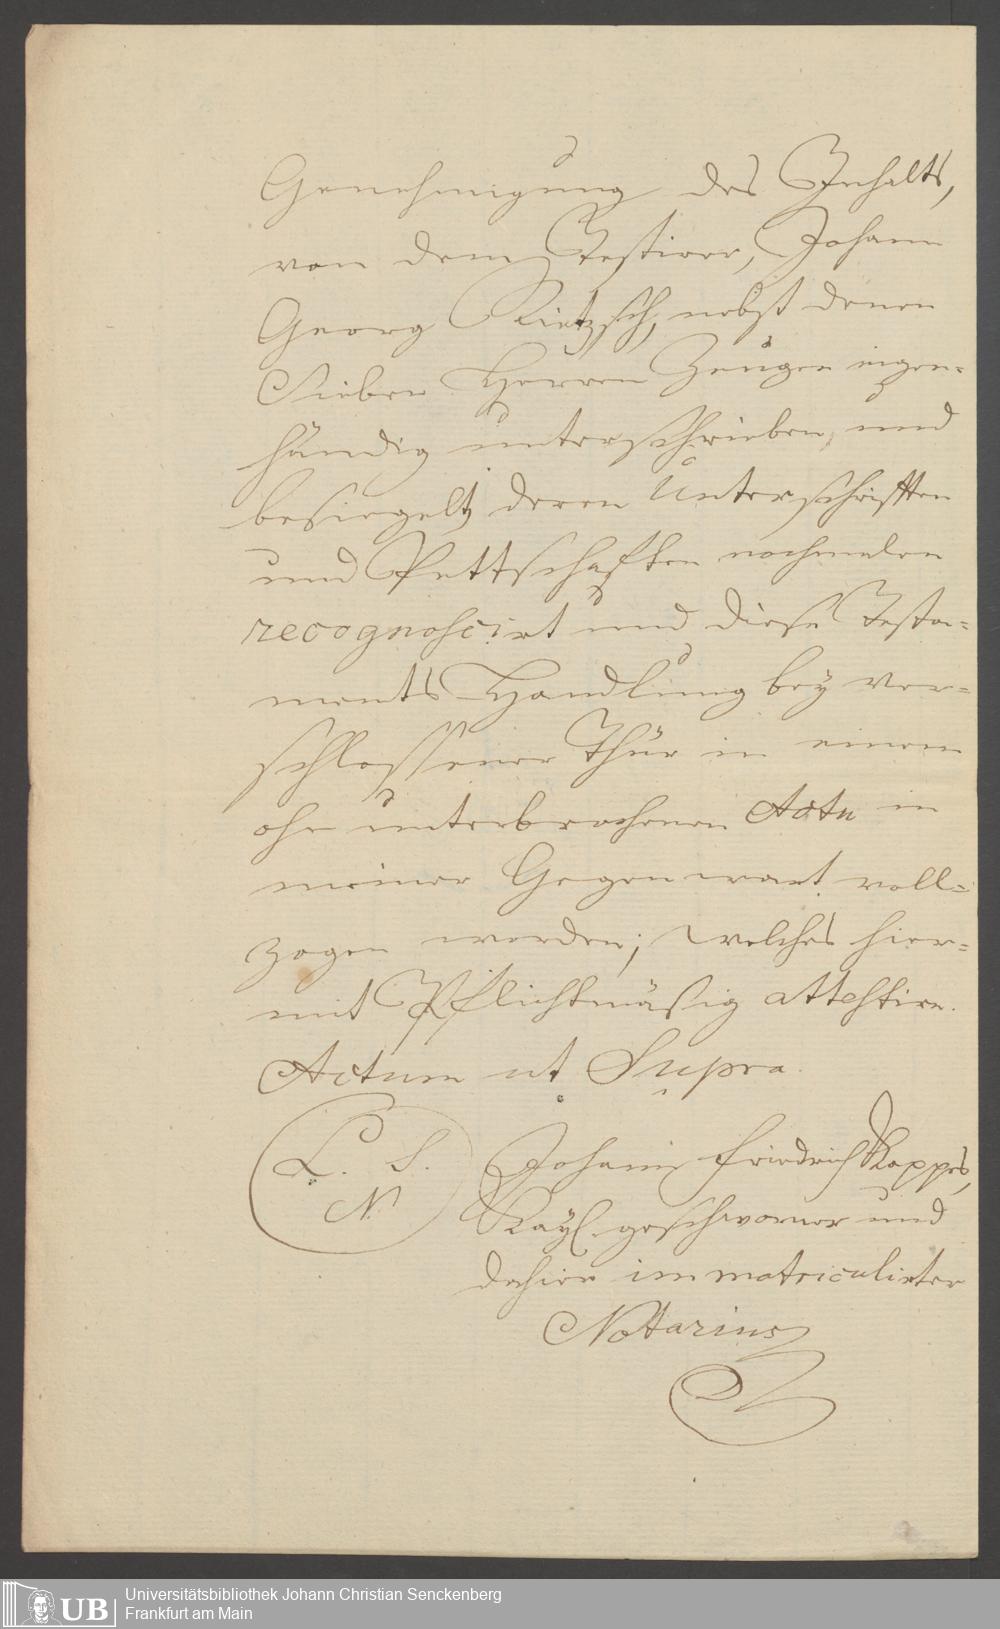 Genehmigung des Inhalts,
von dem Testirer, Johann
Georg Rietzsch, nebst denen
Sieben Herren Zeugen eigen=
händig unterschrieben, und
besiegelt, deren Unterschrifften
und Pettschafften nochmalen
recognoscirt und diese Testa=
ments Handlung bey ver=
schlossener Thür in einem
ohnunterbrochenen Actu in
meiner Gegenwart voll=
zogen worden; welches hier=
mit Pflichtmäßig attestire.
Actum ut Supra.
L. S.
N.
Johann Friedrich Kappes,
Kayl. geschworner und
dahier immatriculirter
Notarius
UB
Universitätsbibliothek Johann Christian Senckenberg
Frankfurt am Main